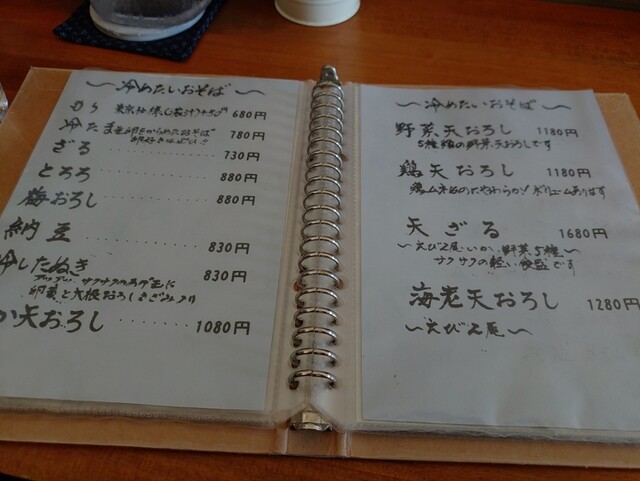 〜冷めたいおそば〜
もり 680円
冷たま 780円
ざる 730円
とろろ 880円
梅おろし 880円
納豆 830円
冷したぬき 830円
か天おろし 1080円
〜冷めたいおそば〜
野菜天おろし 1180円
5種類の野菜天おろしです
鶏天おろし 1180円
鶏ムネ肉のためやわらか! ボリュームあります
天ざる 1680円
〜えび2尾・いか・野菜5種〜
サクサクの軽い食感です
海老天おろし 1280円
〜えび2尾〜